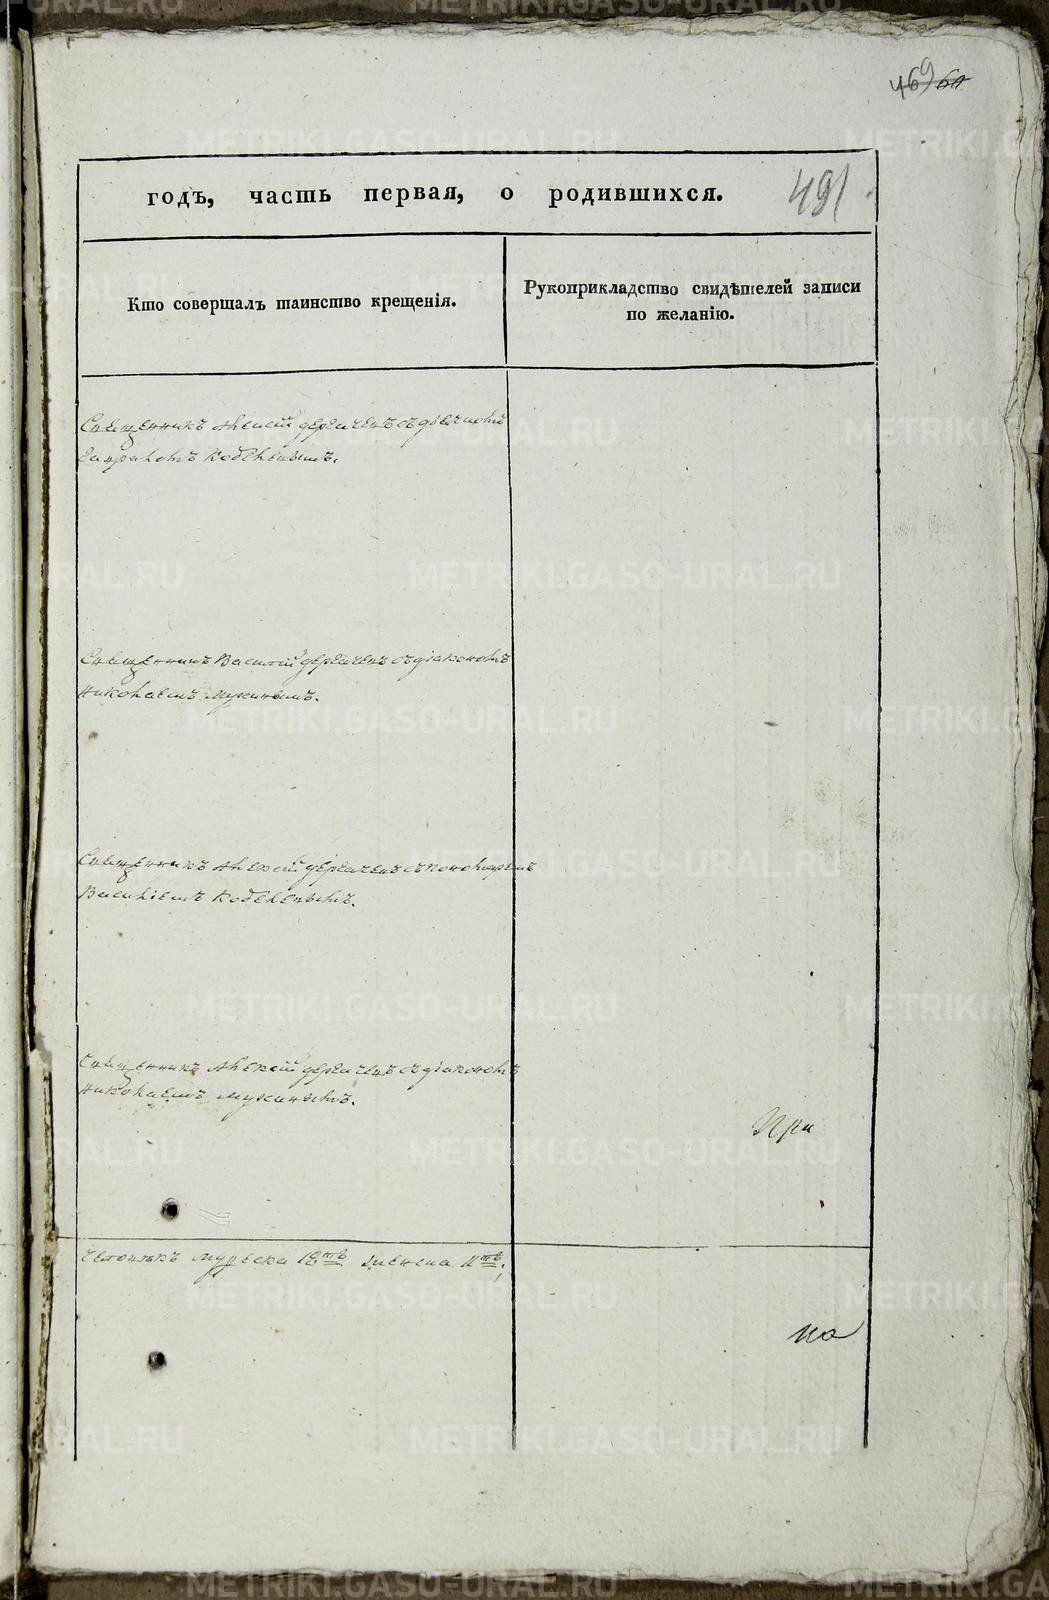 469 60
годъ, часть первая, о родившихся.
491
Кто совершалъ таинство крещенія.
Рукоприкладство свидѣтелей записи
по желанію.
Священникъ Алексій Дергачевъ съ дьячкомъ
Кобелевымъ.
Священникъ Василій Дергачевъ съ діакономъ
Николаемъ Мухинымъ.
Священникъ Алексѣй Дергачевъ съ пономаремъ
Василіемъ Кобелевымъ.
Священникъ Алексѣй Дергачевъ съ діакономъ
Николаемъ Мухинымъ.
При
человѣкъ мужеска 12ть женска 11ть.
по
METRIKI.GASO-URAL.RU